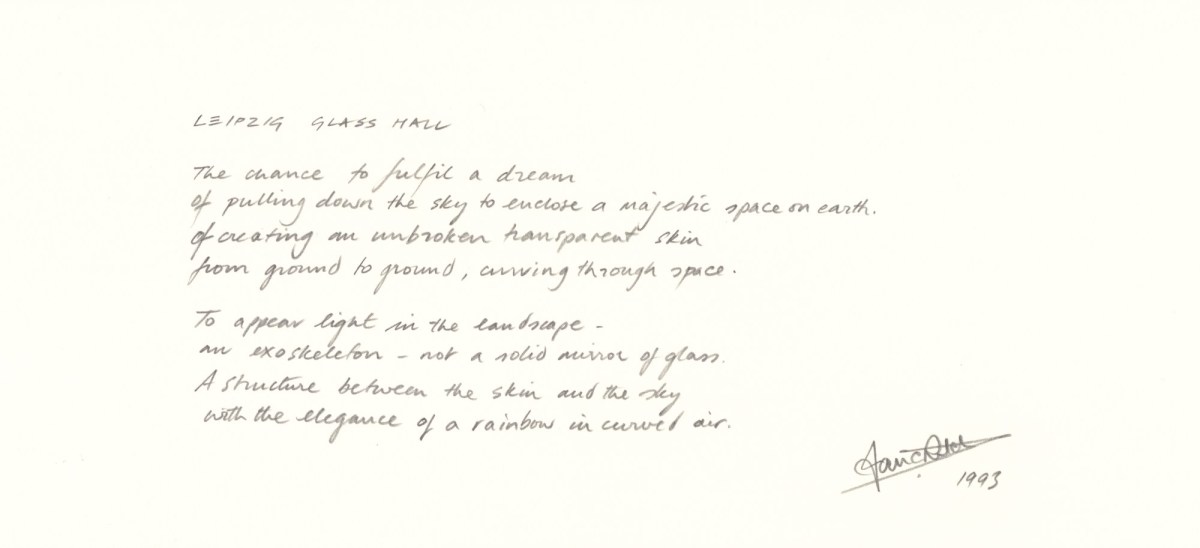 LEIPZIG GLASS HALL
The chance to fulfil a dream
of pulling down the sky to enclose a majestic space on earth.
of creating an unbroken transparent skin
from ground to ground, curving through space.
To appear light in the landscape -
an exoskeleton - not a solid mirror of glass.
A structure between the skin and the sky
with the elegance of a rainbow in curved air.
1993